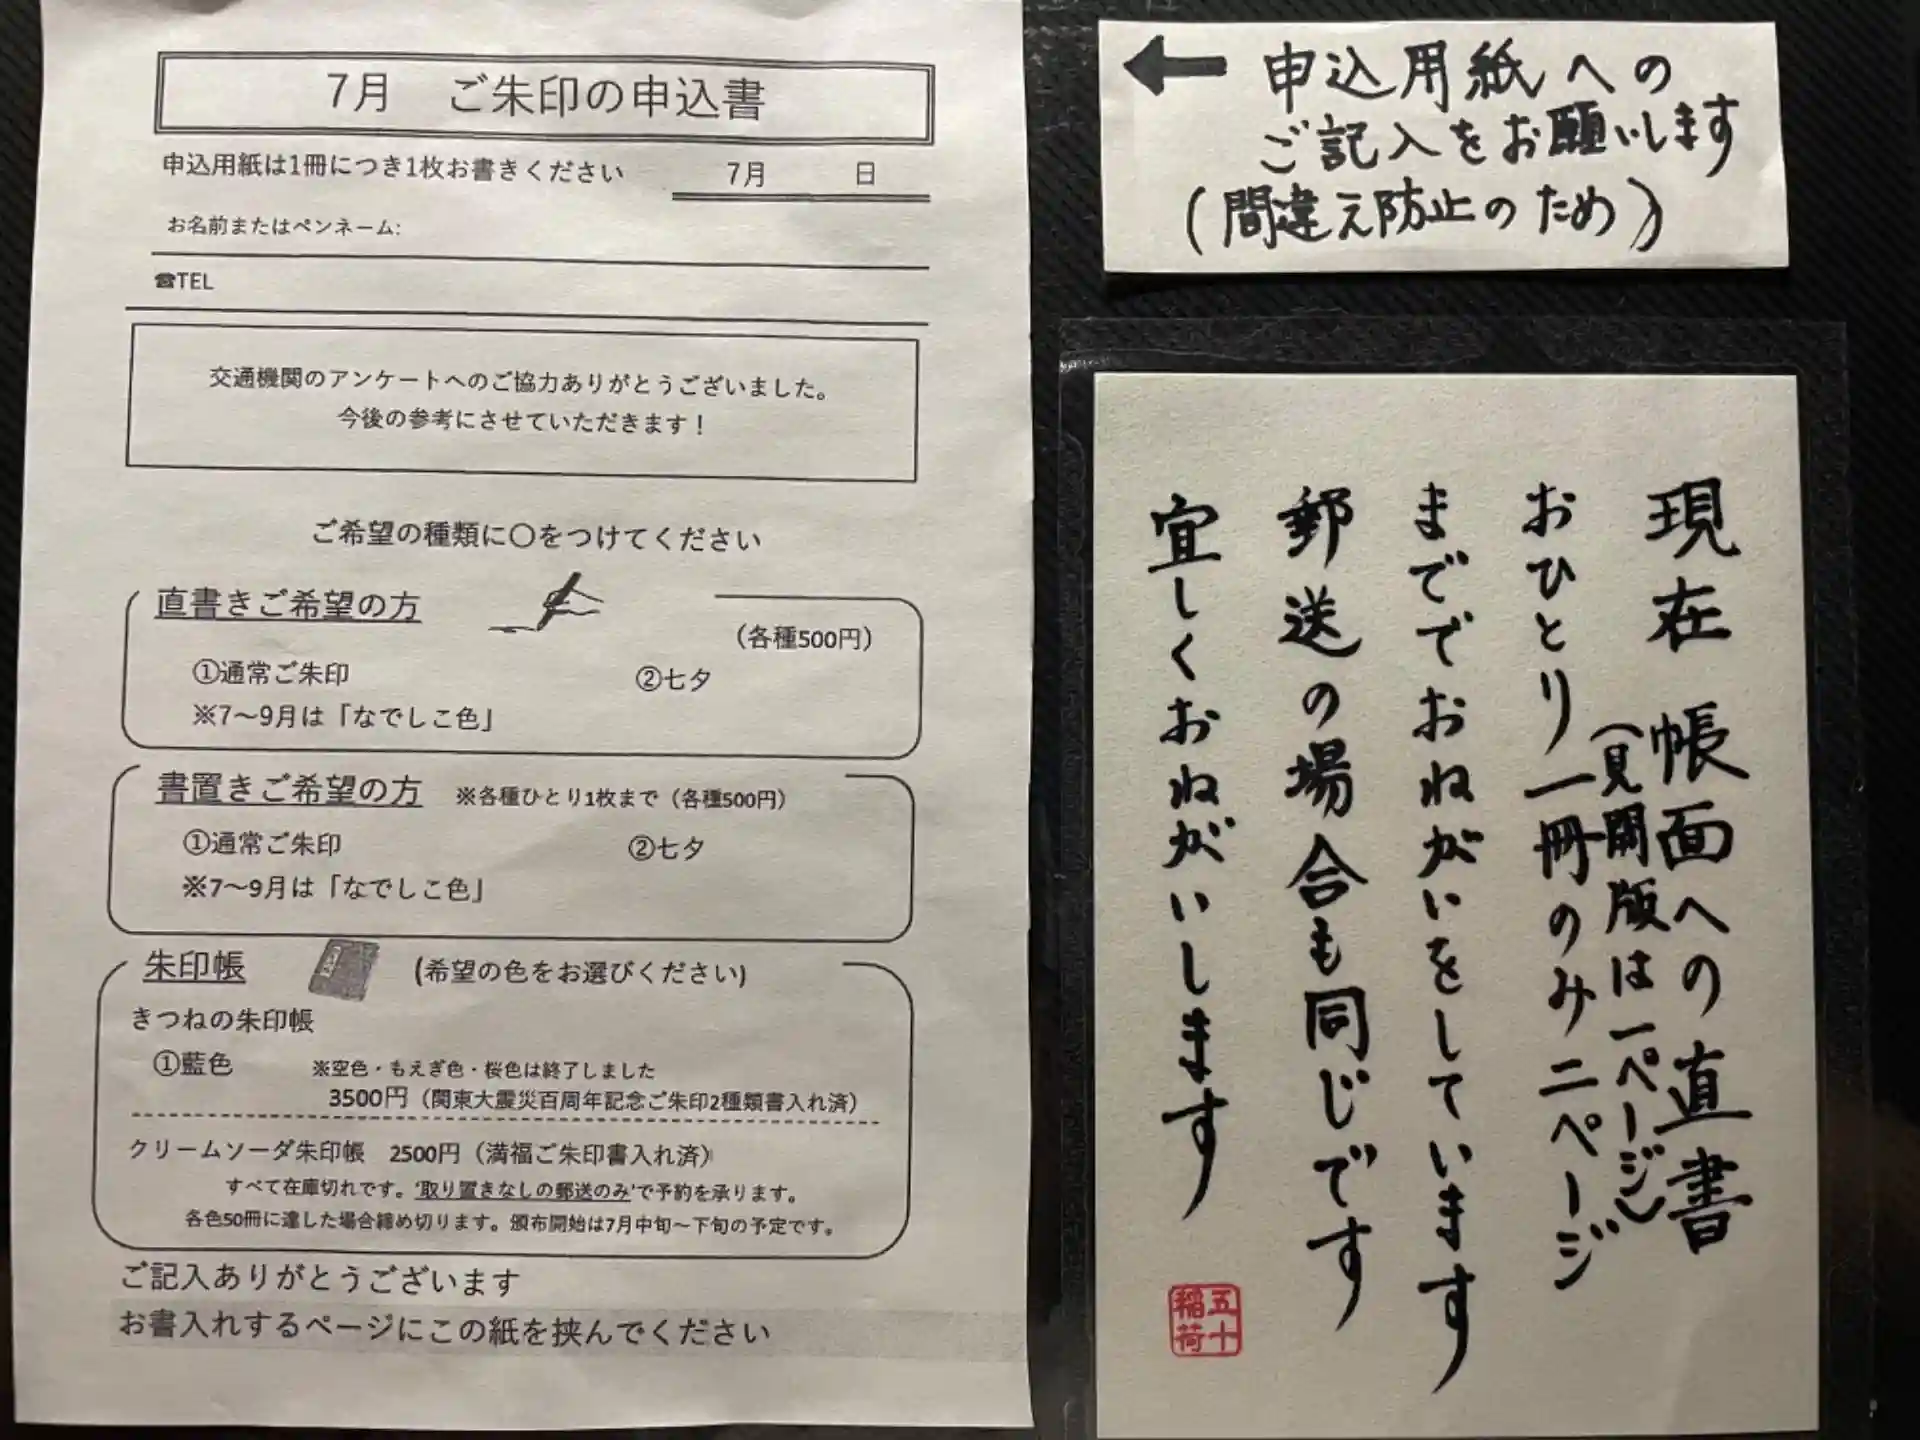 7月　ご朱印の申込書
申込用紙は1冊につき1枚お書きください　7月　日
お名前またはペンネーム:
☎TEL
交通機関のアンケートへのご協力ありがとうございました。
今後の参考にさせていただきます！
ご希望の種類に〇をつけてください
直書きご希望の方
（各種500円）
①通常ご朱印　②七夕
※7～9月は「なでしこ色」
書置きご希望の方　※各種ひとり1枚まで（各種500円）
①通常ご朱印　②七夕
※7～9月は「なでしこ色」
朱印帳　(希望の色をお選びください)
きつねの朱印帳
①藍色　※空色・もえぎ色・桜色は終了しました
3500円（関東大震災百周年記念ご朱印2種類書入れ済）
クリームソーダ朱印帳　2500円（満福ご朱印書入れ済）
すべて在庫切れです。‘取り置きなしの郵送のみ’で予約を承ります。
各色50冊に達した場合締め切ります。頒布開始は7月中旬～下旬の予定です。
ご記入ありがとうございます
お書入れするページにこの紙を挟んでください
← 申込用紙への
ご記入をお願いします
（間違え防止のため）
現在 帳面への直書
（見開版は一ページ）
おひとり一冊のみ二ページ
まででおねがいをしています
郵送の場合も同じです
宜しくおねがいします
五十
稲荷